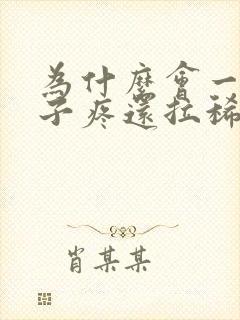 為什麼會一
子疼還拉稀
肖某某